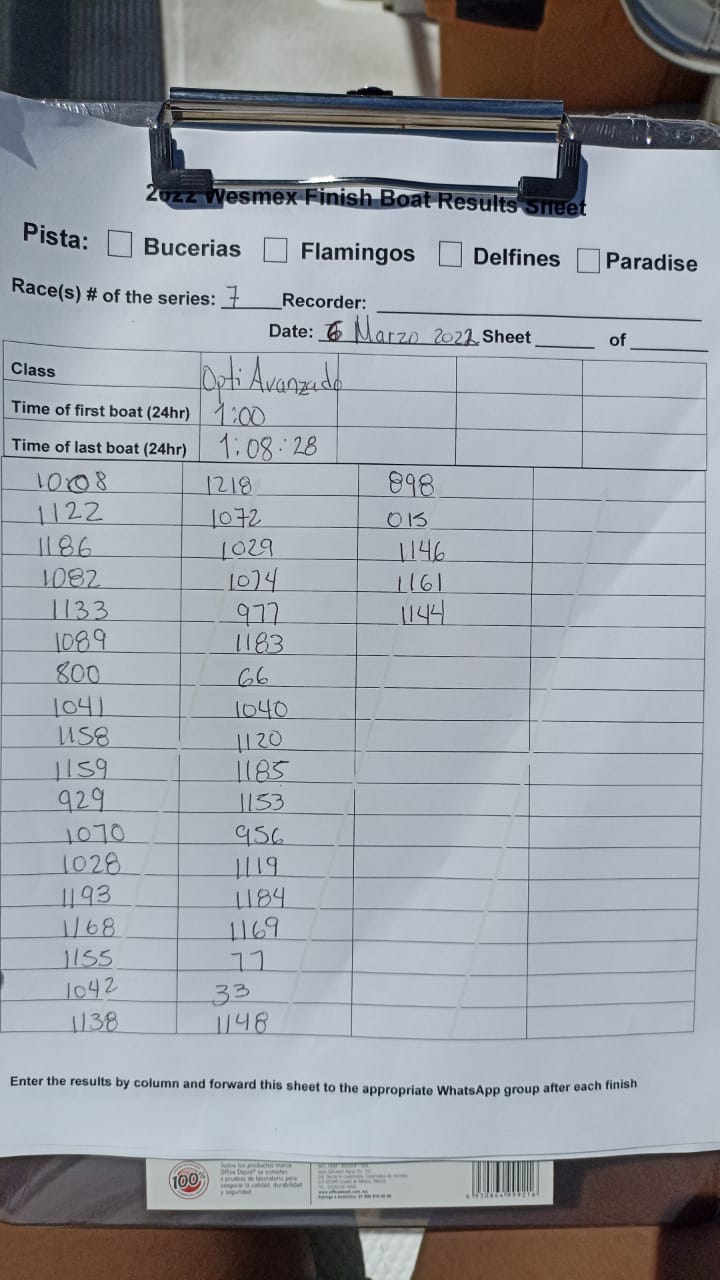 2022 Wesmex Finish Boat Results Sheet
Pista: Bucerias Flamingos Delfines Paradise
Race(s) # of the series: 7 Recorder:
Date: 6 Marzo 2022 Sheet of
Class Opti Avanzado
Time of first boat (24hr) 1:00
Time of last boat (24hr) 1:08:28
1008 1218 898
1122 1072 015
1186 1029 1146
1082 1074 1161
1133 977 1144
1089 1183
800 66
1041 1040
1158 1120
1159 1185
929 1153
1070 956
1028 1119
1193 1184
1168 1169
1155 77
1042 33
1138 1148
Enter the results by column and forward this sheet to the appropriate WhatsApp group after each finish
100%
Todos los productos marca
Office Depot® se someten
a pruebas de laboratorio para
asegurar la calidad, durabilidad
y seguridad